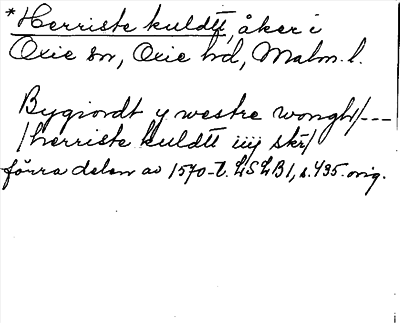 *Herriste kuldtt, åker i
Oxie sn, Oxie hd, Malm. l.
Bygiordt y westre wonght/---
/herriste kuldtt iiij skr/
förra delen av 1570-t. LSLB1, s. 435. orig.